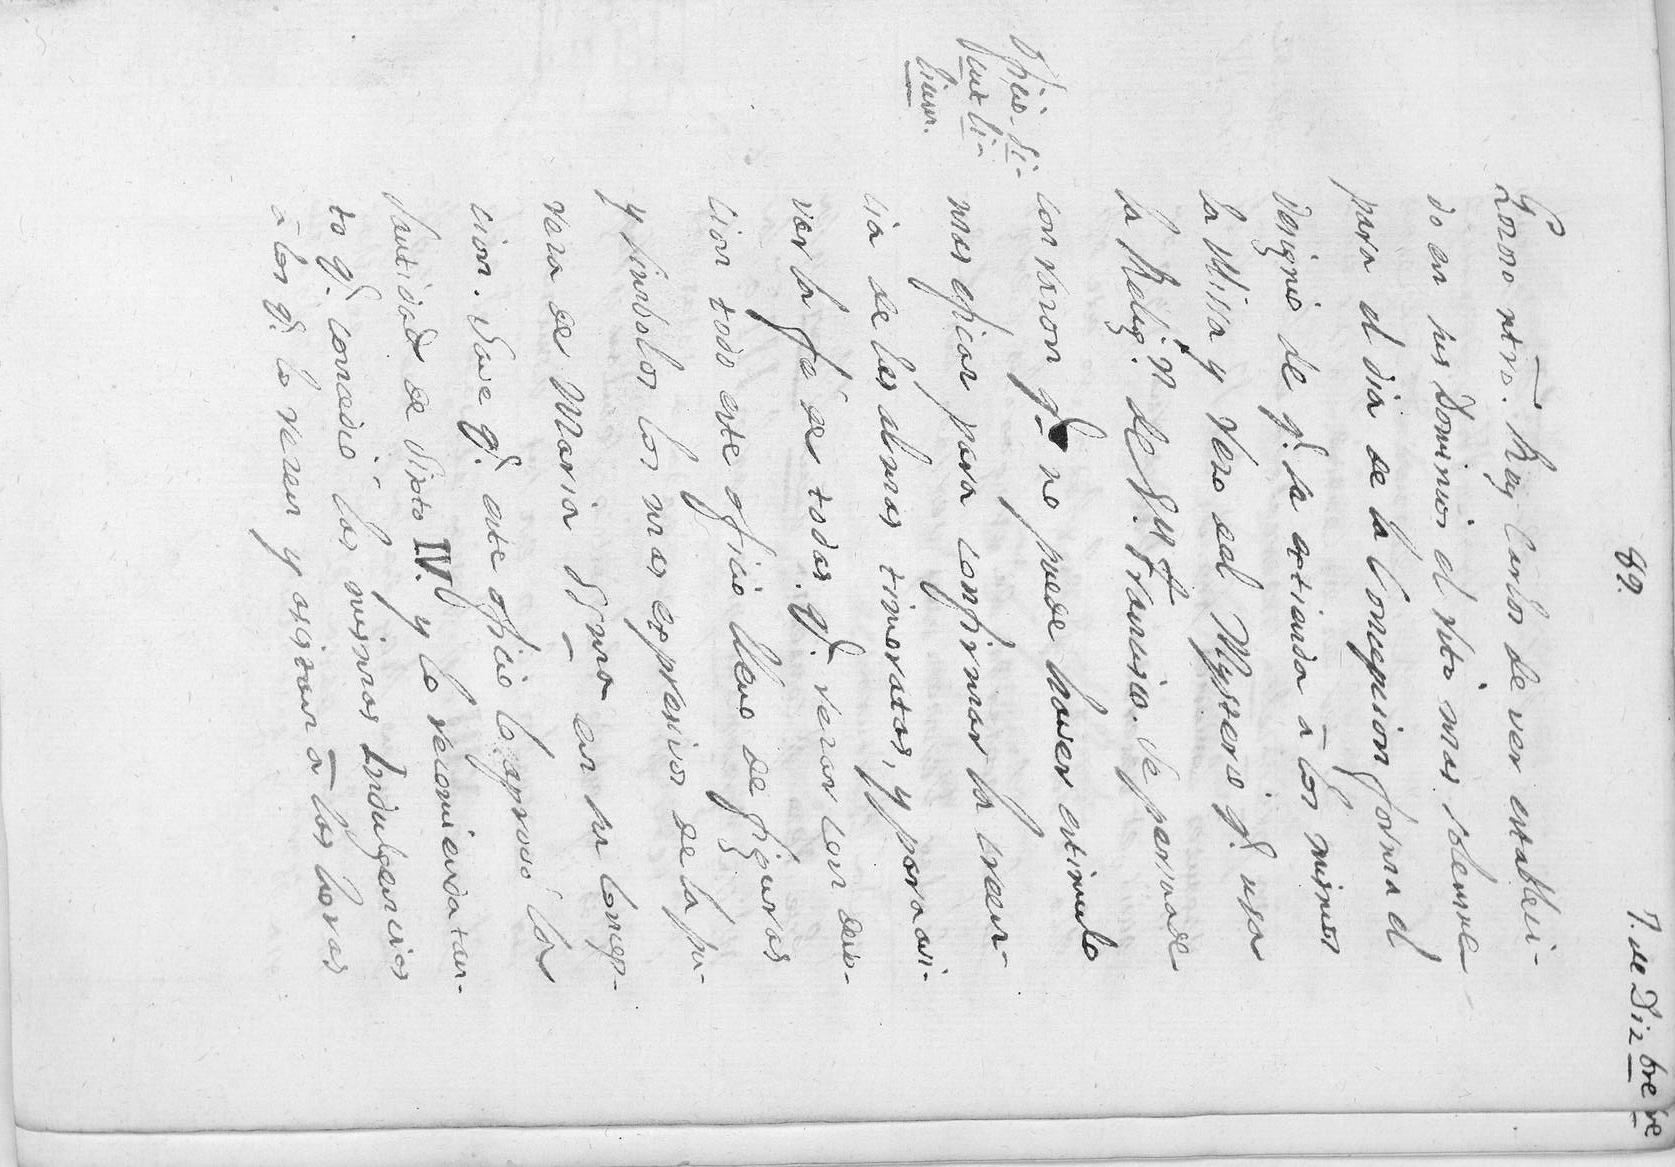 89.
7. de Diz bre de
loso ntro. Rey Carlos de ver estableci-
do en sus Dominios el rito mas solemne
para el dia de la Concepcion forma el
designio de q. se extienda à los mismos
la Missa y rezo del Mysterio q. usa
la Relig.n de S.n Francisco. Se persuade
con razon q. no puede haver estimulo
mas eficaz para confirmar la creen-
cia de las almas timoratas, y para avi-
var la fé de todas q. rezar con devo-
cion todo este oficio lleno de figuras
y simbolos los mas expresivos de la pu-
reza de Maria SSma en su Concep-
cion. Save q. este oficio lo aprovó la
Santidad de Sixto IV. y lo recomienda tan-
to q. concedió las mismas Indulgencias
à los q. lo rezen y asistan à las horas